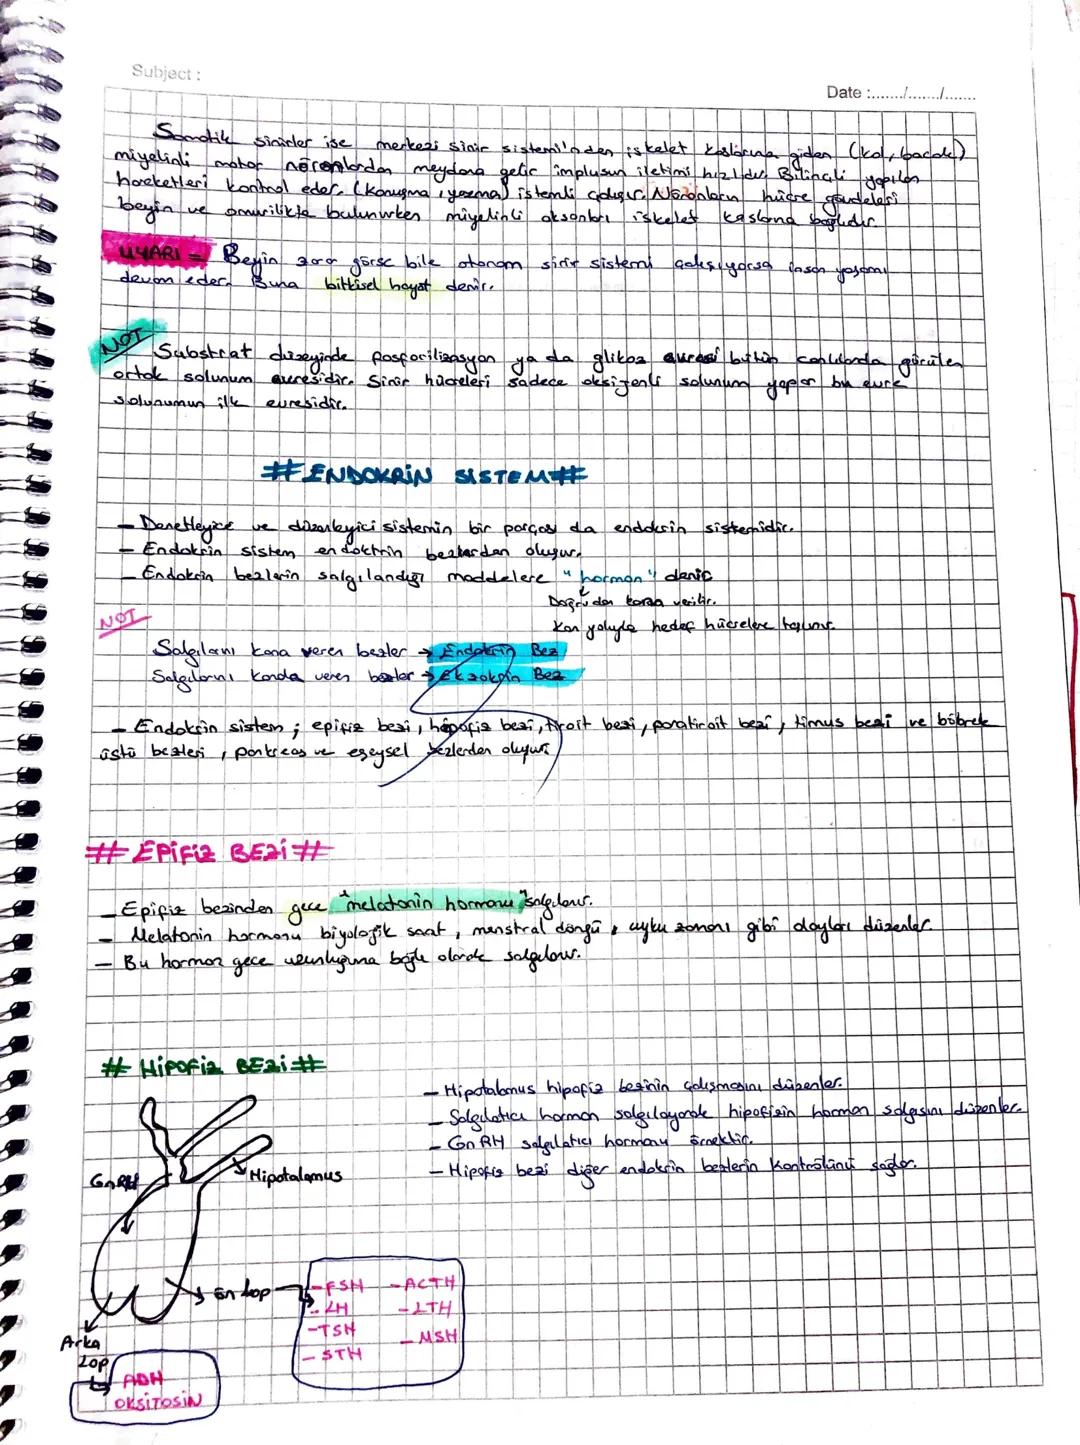 Subject :
Date :......./......./.......
Somatik sinirler ise merkezi sinir sistemi'nden iskelet kaslarına giden (kol, bacak)
miyelinli motor nöronlardan meydana gelir implusun iletimi hızlıdır. Bilinçli yapılan
hareketleri kontrol eder. (konuşma, yazma) istemli çalışır. Nöronların hücre gövdeleri
beyin ve omurilikte bulunurken miyelinli aksonları iskelet kaslarına bağlıdır.
UYARI = Beyin zarar görse bile otonom sinir sistemi çalışıyorsa insan yaşamı
devam eder. Buna bitkisel hayat denir.
NOT
Substrat düzeyinde fosforilizasyon ya da glikoz evresi bütün canlılarda görülen
ortak solunum evresidir. Sinir hücreleri sadece oksijenli solunum yapar bu evre
solunumun ilk evresidir.
# ENDOKRİN SİSTEM #
- Denetleyici ve düzenleyici sistemin bir parçası da endokrin sistemidir.
- Endokrin sistem endoktrin bezlerden oluşur.
- Endokrin bezlerin salgılandığı maddelere "hormon" denir
Doğrudan kana verilir.
Kan yoluyla hedef hücrelere taşınır.
NOT
Salgılarını kana veren bezler → Endokrin Bez
Salgılarını kanala veren bezler → Ekzokrin Bez
- Endokrin sistem ; epifiz bezi, hipofiz bezi, tiroit bezi, paratiroit bezi, timus bezi ve böbrek
üstü bezleri, pankreas ve eşeysel bezlerden oluşur
# EPİFİZ BEZİ #
- Epifiz bezinden gece "melatonin hormonu" salgılanır.
- Melatonin hormonu biyolojik saat, menstral döngü, uyku zamanı gibi olayları düzenler.
- Bu hormon gece uzunluğuna bağlı olarak salgılanır.
# HİPOFİZ BEZİ #
- Hipotalamus hipofiz bezinin çalışmasını düzenler.
- Salgılatıcı hormon salgılayarak hipofizin hormon salgısını düzenler.
- GnRH salgılatıcı hormonu örnektir.
- Hipofiz bezi diğer endokrin bezlerin kontrolünü sağlar.
GnRH
Hipotalamus
Ön Lop
- FSH - ACTH
- LH - LTH
- TSH - MSH
- STH
Arka
Lop
ADH
OKSİTOSİN